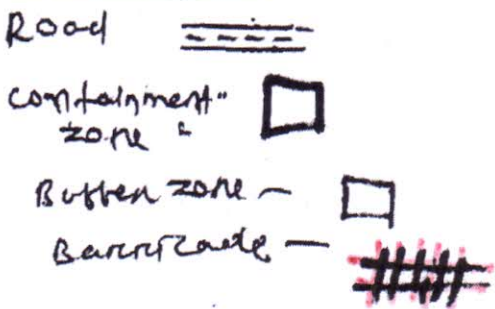 Road
Containment"
zone "
Buffer zone -
Barricade -